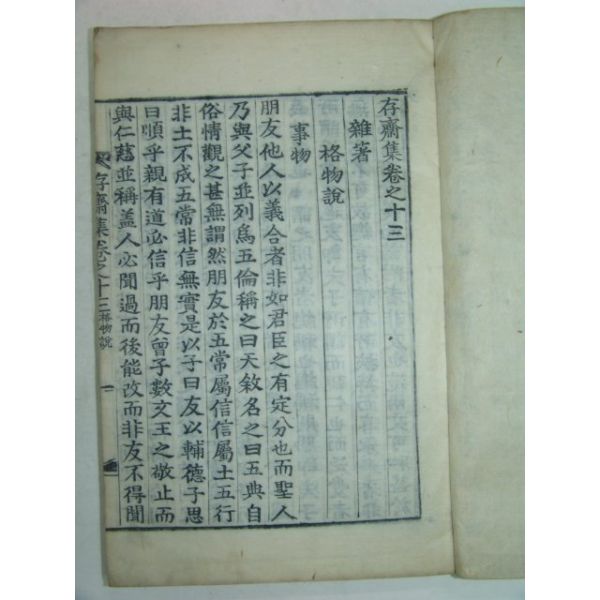 存齋集卷之十三
雜著
格物說
事物
朋友他人以義合者非如君臣之有定分也而聖人
乃與父子並列爲五倫稱之曰天敘名之曰五典自
俗情觀之甚無謂然朋友於五常屬信信屬土五行
非土不成五常非信無實是以子曰友以輔德子思
曰順乎親有道必信乎朋友曾子數文王之敬止而
與仁慈並稱盖人必聞過而後能改而非友不得聞
存齋集卷之十三 格物說 一